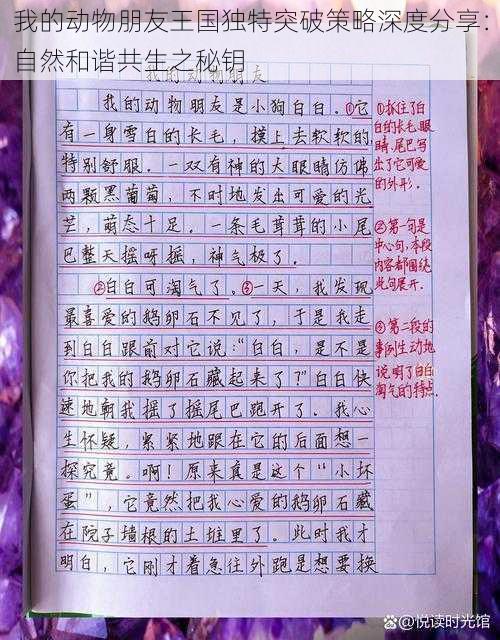 我的动物朋友王国独特突破策略深度分享：
自然和谐共生之秘钥
我的动物朋友
我的动物朋友是小狗白白。①它
有一身雪白的长毛，摸上去软软的
特别舒服。一双有神的大眼睛仿佛
两颗黑葡萄，不时地发出可爱的光
芒，萌态十足。一条毛茸茸的小尾
巴整天摇呀摇，神气极了。
②白白可淘气了。③一天，我发现
最喜爱的鹅卵石不见了，于是我走
到白白跟前对它说：“白白，是不是
你把我的鹅卵石藏起来了？”白白快
速地朝我摇了摇尾巴跑开了。我心
生怀疑，紧紧地跟在它的后面想一
探究竟。啊！原来真是这个“小坏
蛋”，它竟然把我心爱的鹅卵石藏
在院子墙根的土堆里了。此时我才
明白，它刚才着急往外跑是想要换
①抓住了白
白的长毛、眼
睛、尾巴写
出了它可爱
的外形。
②第一句是
中心句，本段
内容都围绕
此句展开。
③第二段的
事例生动地
说明了白白
淘气的特点。
悦读时光馆